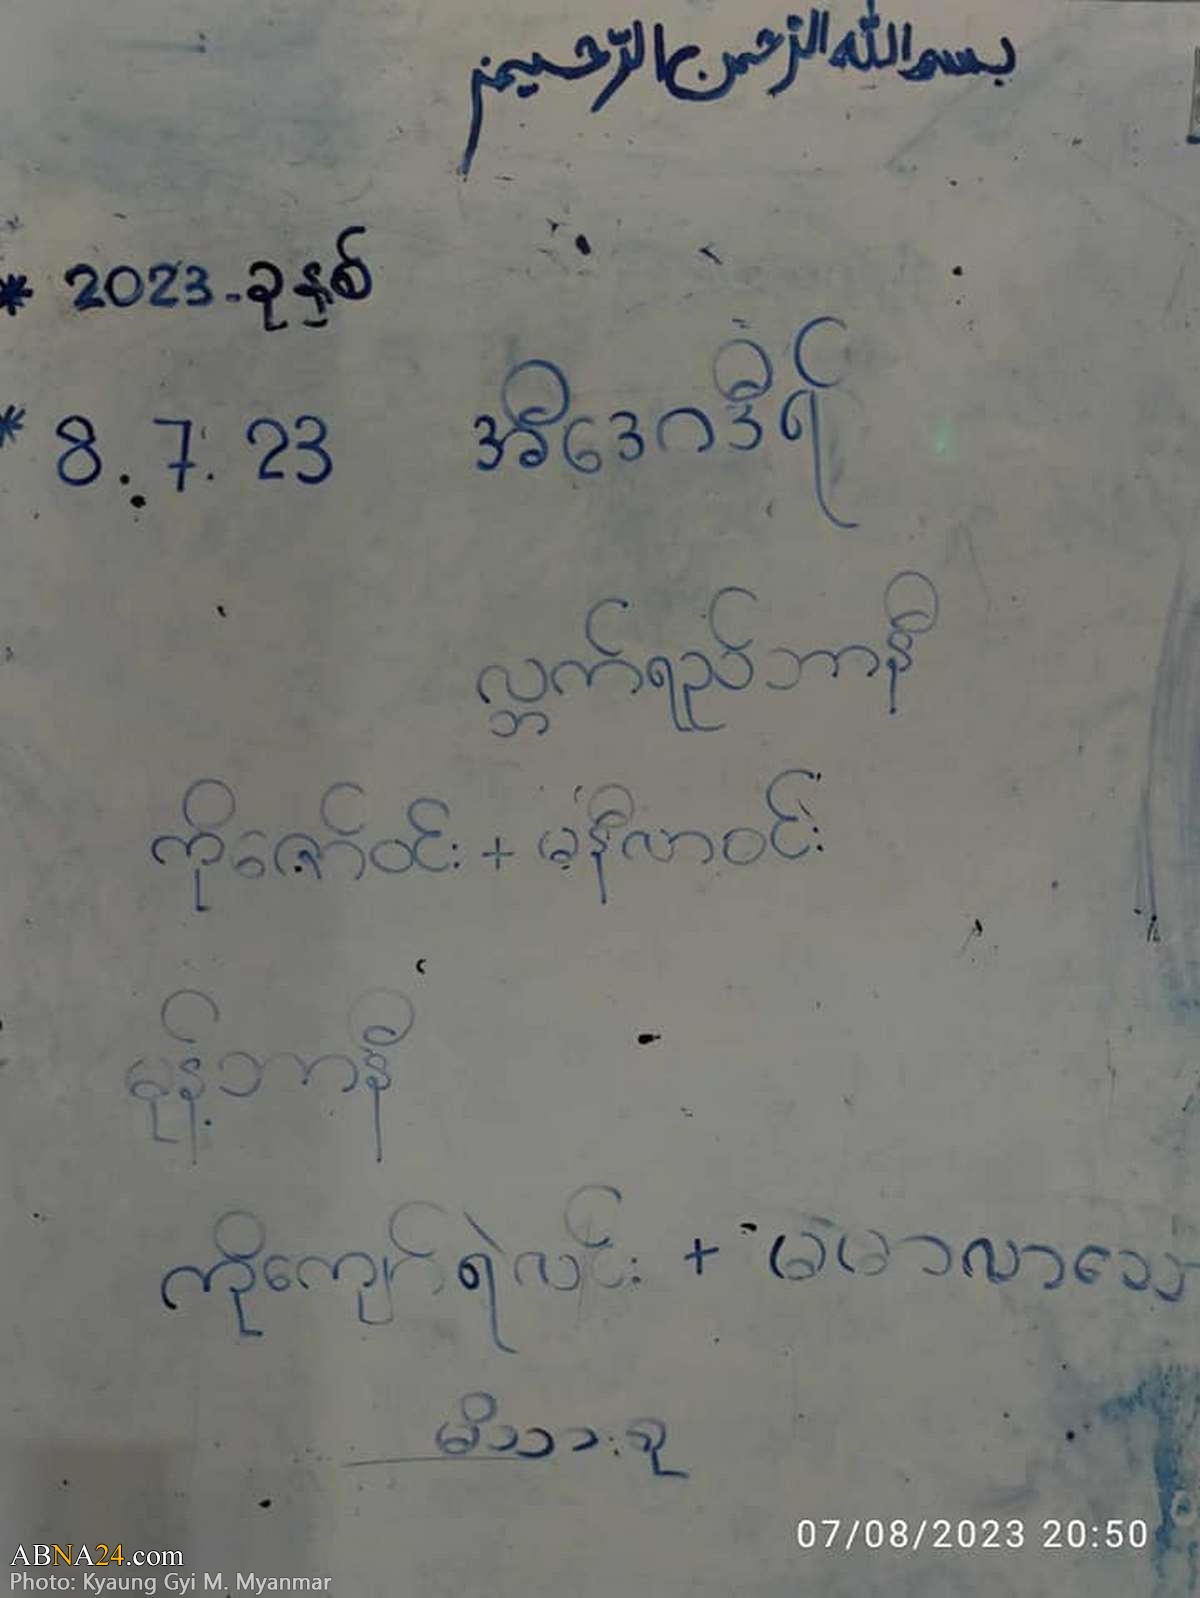 بسم الله الرحمن الرحيم
* 2023 - ခုနှစ်
* 8.7.23 အီဒေဂဒီရ်
လ္ဘက်ရည်ဘာနီ
ကိုဇော်ဝင်း + မနီလာဝင်း
မုန့်ဘာနီ
ကိုကျော်ရဲလင်း +
မိသားစု
07/08/2023 20:50
ABNA24.com
Photo: Kyaung Gyi M. Myanmar